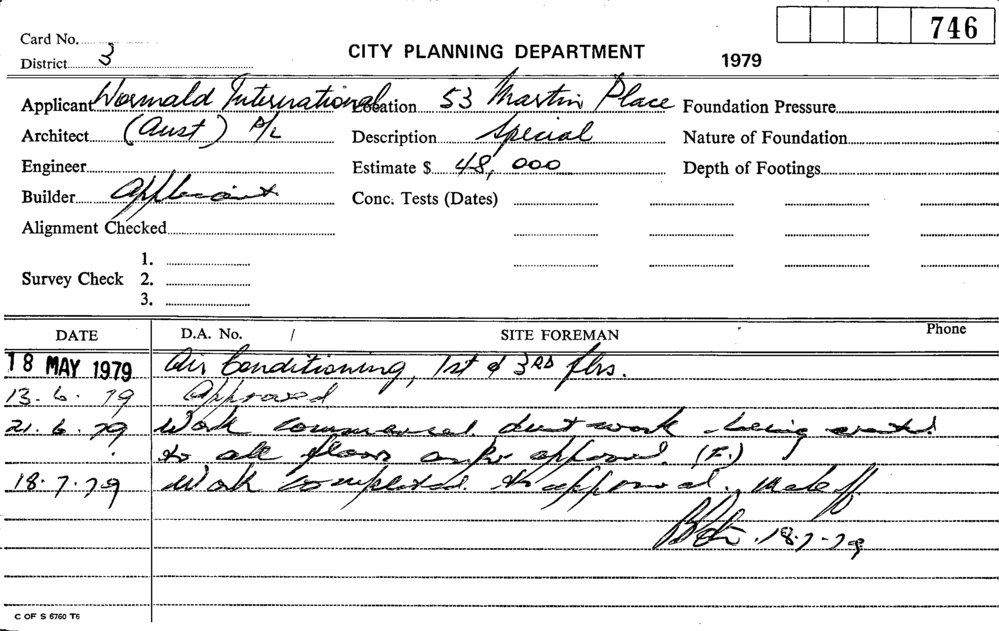 746
Card No.
District 3
CITY PLANNING DEPARTMENT
1979
Applicant Wormald International Location 53 Martin Place Foundation Pressure
Architect (Aust) P/L Description Special Nature of Foundation
Engineer Estimate $ 48,000 Depth of Footings
Builder Applicant Conc. Tests (Dates)
Alignment Checked
1.
Survey Check 2.
3.
DATE D.A. No. / SITE FOREMAN Phone
18 MAY 1979 Air Conditioning, 1st & 3RD flrs.
13.6.79 Approved
21.6.79 Work commenced. duct work being erected
to all floors as per approval. (F.)
18.7.79 Work completed to approval.
18-7-79
C OF S 6760 T6